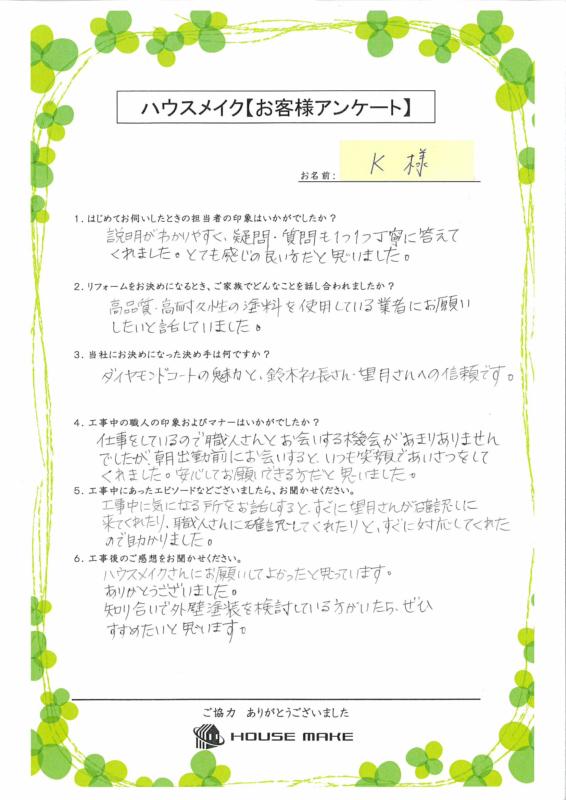 ハウスメイク【お客様アンケート】
お名前： K 様
1．はじめてお伺いしたときの担当者の印象はいかがでしたか？
説明がわかりやすく、疑問・質問も1つ1つ丁寧に答えて
くれました。とても感じの良い方だと思いました。
2．リフォームをお決めになるとき、ご家族でどんなことを話し合われましたか？
高品質・高耐久性の塗料を使用している業者にお願い
したいと話していました。
3．当社にお決めになった決め手は何ですか？
ダイヤモンドコートの魅力と、鈴木社長さん・望月さんへの信頼です。
4．工事中の職人の印象およびマナーはいかがでしたか？
仕事をしているので職人さんとお会いする機会があまりありません
でしたが、朝出勤前にお会いすると、いつも笑顔であいさつをして
くれました。安心してお願いできる方だと思いました。
5．工事中にあったエピソードなどございましたら、お聞かせください。
工事中に気になる所をお話しすると、すぐに望月さんが確認しに
来てくれたり、職人さんに確認してくれたりと、すぐに対応してくれた
ので助かりました。
6．工事後のご感想をお聞かせください。
ハウスメイクさんにお願いしてよかったと思っています。
ありがとうございました。
知り合いで外壁塗装を検討している方がいたら、ぜひ
すすめたいと思います。
ご協力 ありがとうございました
HOUSE MAKE